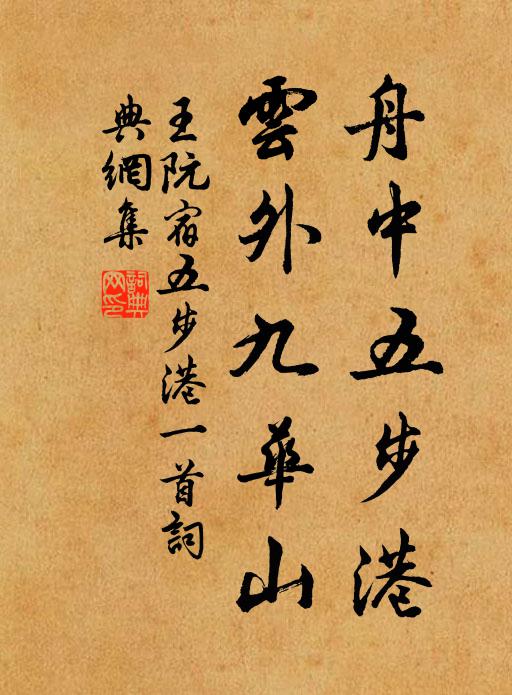 舟中五步港
雲外九華山
王阮宿五步港一首詞
典網集
詞典网印